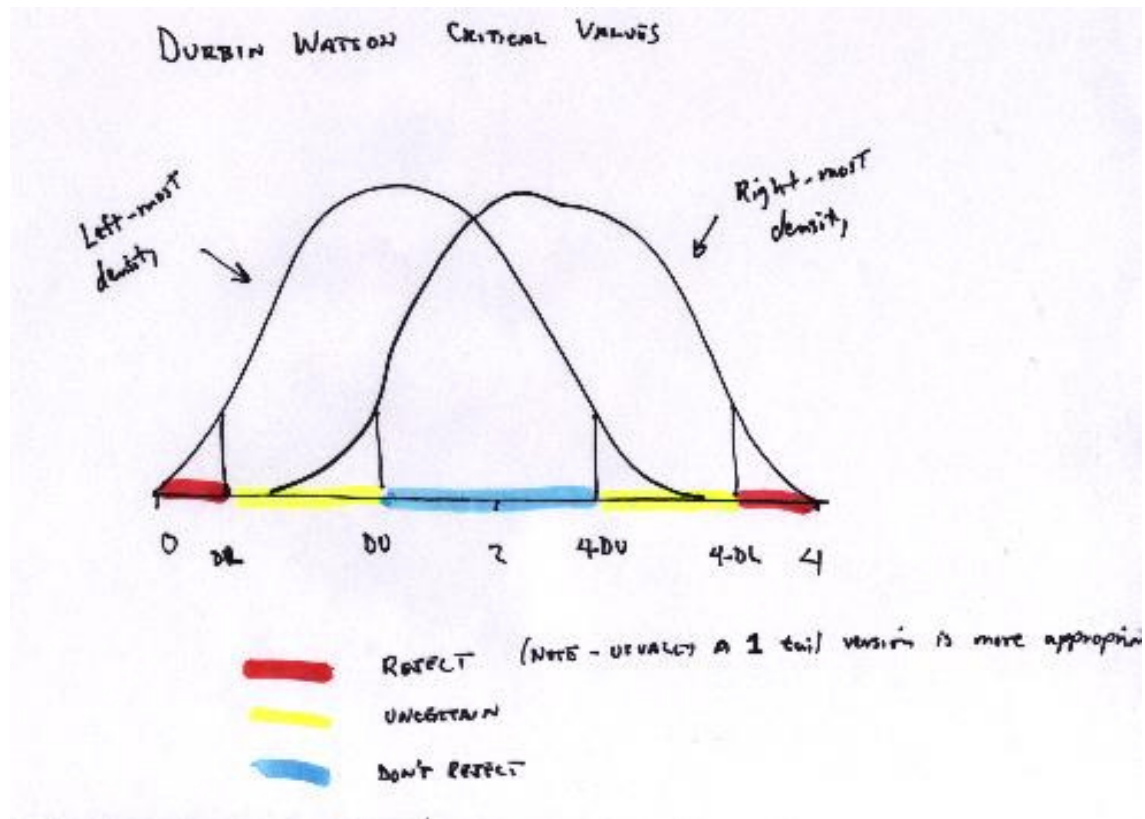 DURBIN WATSON CRITICAL VALUES
Left-most
density
Right-most
density
0 DL DU 2 4-DU 4-DL 4
REJECT (NOTE - USUALLY A 1 tail version is more appropri
UNCERTAIN
DON'T REJECT